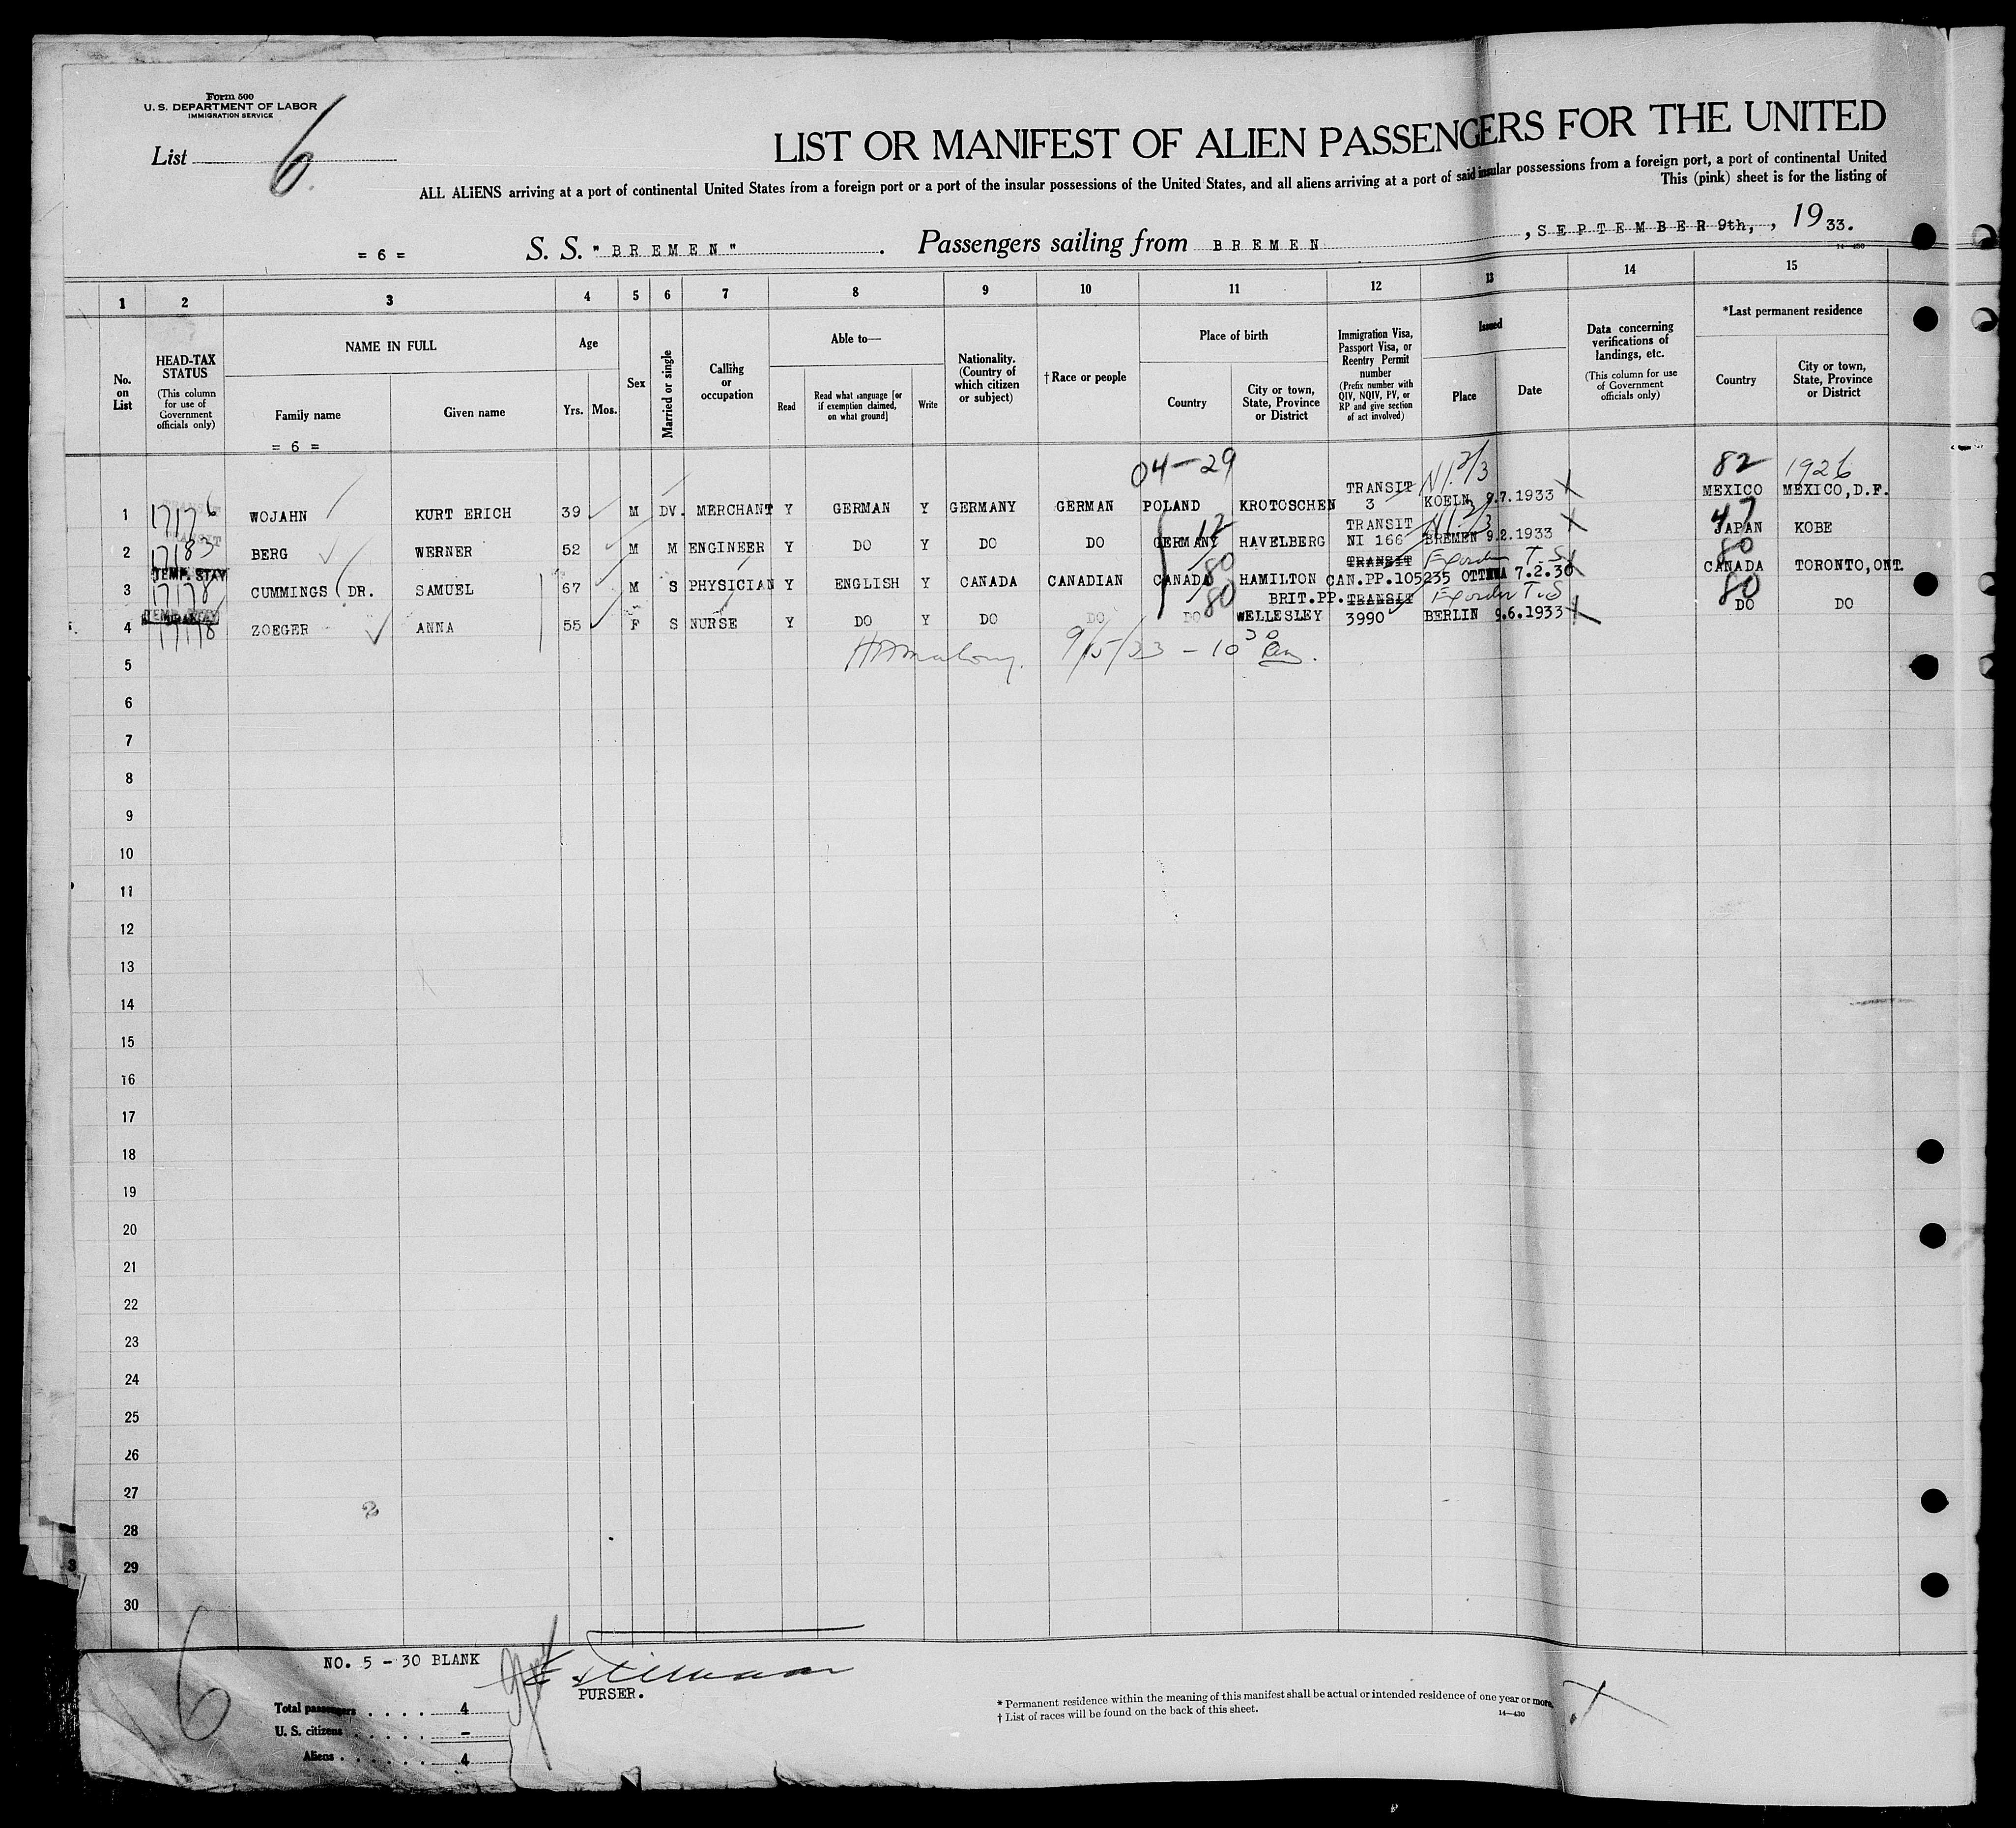 Form 500
U. S. DEPARTMENT OF LABOR
IMMIGRATION SERVICE
List 6
LIST OR MANIFEST OF ALIEN PASSENGERS FOR THE UNITED
ALL ALIENS arriving at a port of continental United States from a foreign port or a port of the insular possessions of the United States, and all aliens arriving at a port of said insular possessions from a foreign port, a port of continental United
This (pink) sheet is for the listing of
= 6 = S. S. "BREMEN". Passengers sailing from BREMEN, SEPTEMBER 9th, , 1933.
14—430
1 2 3 4 5 6 7 8 9 10 11 12 13 14 15
No. on List
HEAD-TAX STATUS
(This column for use of Government officials only)
NAME IN FULL
Family name
Given name
Age
Yrs.
Mos.
Sex
Married or single
Calling or occupation
Able to—
Read
Read what language [or if exemption claimed, on what ground]
Write
Nationality. (Country of which citizen or subject)
† Race or people
Place of birth
Country
City or town, State, Province or District
Immigration Visa, Passport Visa, or Reentry Permit number
(Prefix number with QIV, NQIV, PV, or RP and give section of act involved)
Issued
Place
Date
Data concerning verifications of landings, etc.
(This column for use of Government officials only)
*Last permanent residence
Country
City or town, State, Province or District
= 6 =
04-29 82 1926
TRANSIT
1 WOJAHN KURT ERICH 39 M DV. MERCHANT Y GERMAN Y GERMANY GERMAN POLAND KROTOSCHEN 3 KOELN 9.7.1933 MEXICO MEXICO,D.F.
12 TRANSIT 47
2 17183 BERG WERNER 52 M M ENGINEER Y DO Y DO DO GERMANY HAVELBERG NI 166 BREMEN 9.2.1933 JAPAN KOBE
TEMP. STAY 80 TRANSIT 80
3 17178 CUMMINGS (DR. SAMUEL 67 M S PHYSICIAN Y ENGLISH Y CANADA CANADIAN CANADA HAMILTON CAN.PP.105235 OTTAWA 7.2.30 CANADA TORONTO,ONT.
80 BRIT.PP. TRANSIT 80
4 17178 ZOEGER ANNA 55 F S NURSE Y DO Y DO DO DO WELLESLEY 3990 BERLIN 9.6.1933 DO DO
9/15/33 - 10 30
5
6
7
8
9
10
11
12
13
14
15
16
17
18
19
20
21
22
23
24
25
26
27
28
29
30
NO. 5 - 30 BLANK
PURSER.
6
Total passengers . . . . 4
U. S. citizens . . . . . —
Aliens . . . . . . 4
* Permanent residence within the meaning of this manifest shall be actual or intended residence of one year or more.
† List of races will be found on the back of this sheet.
14—430